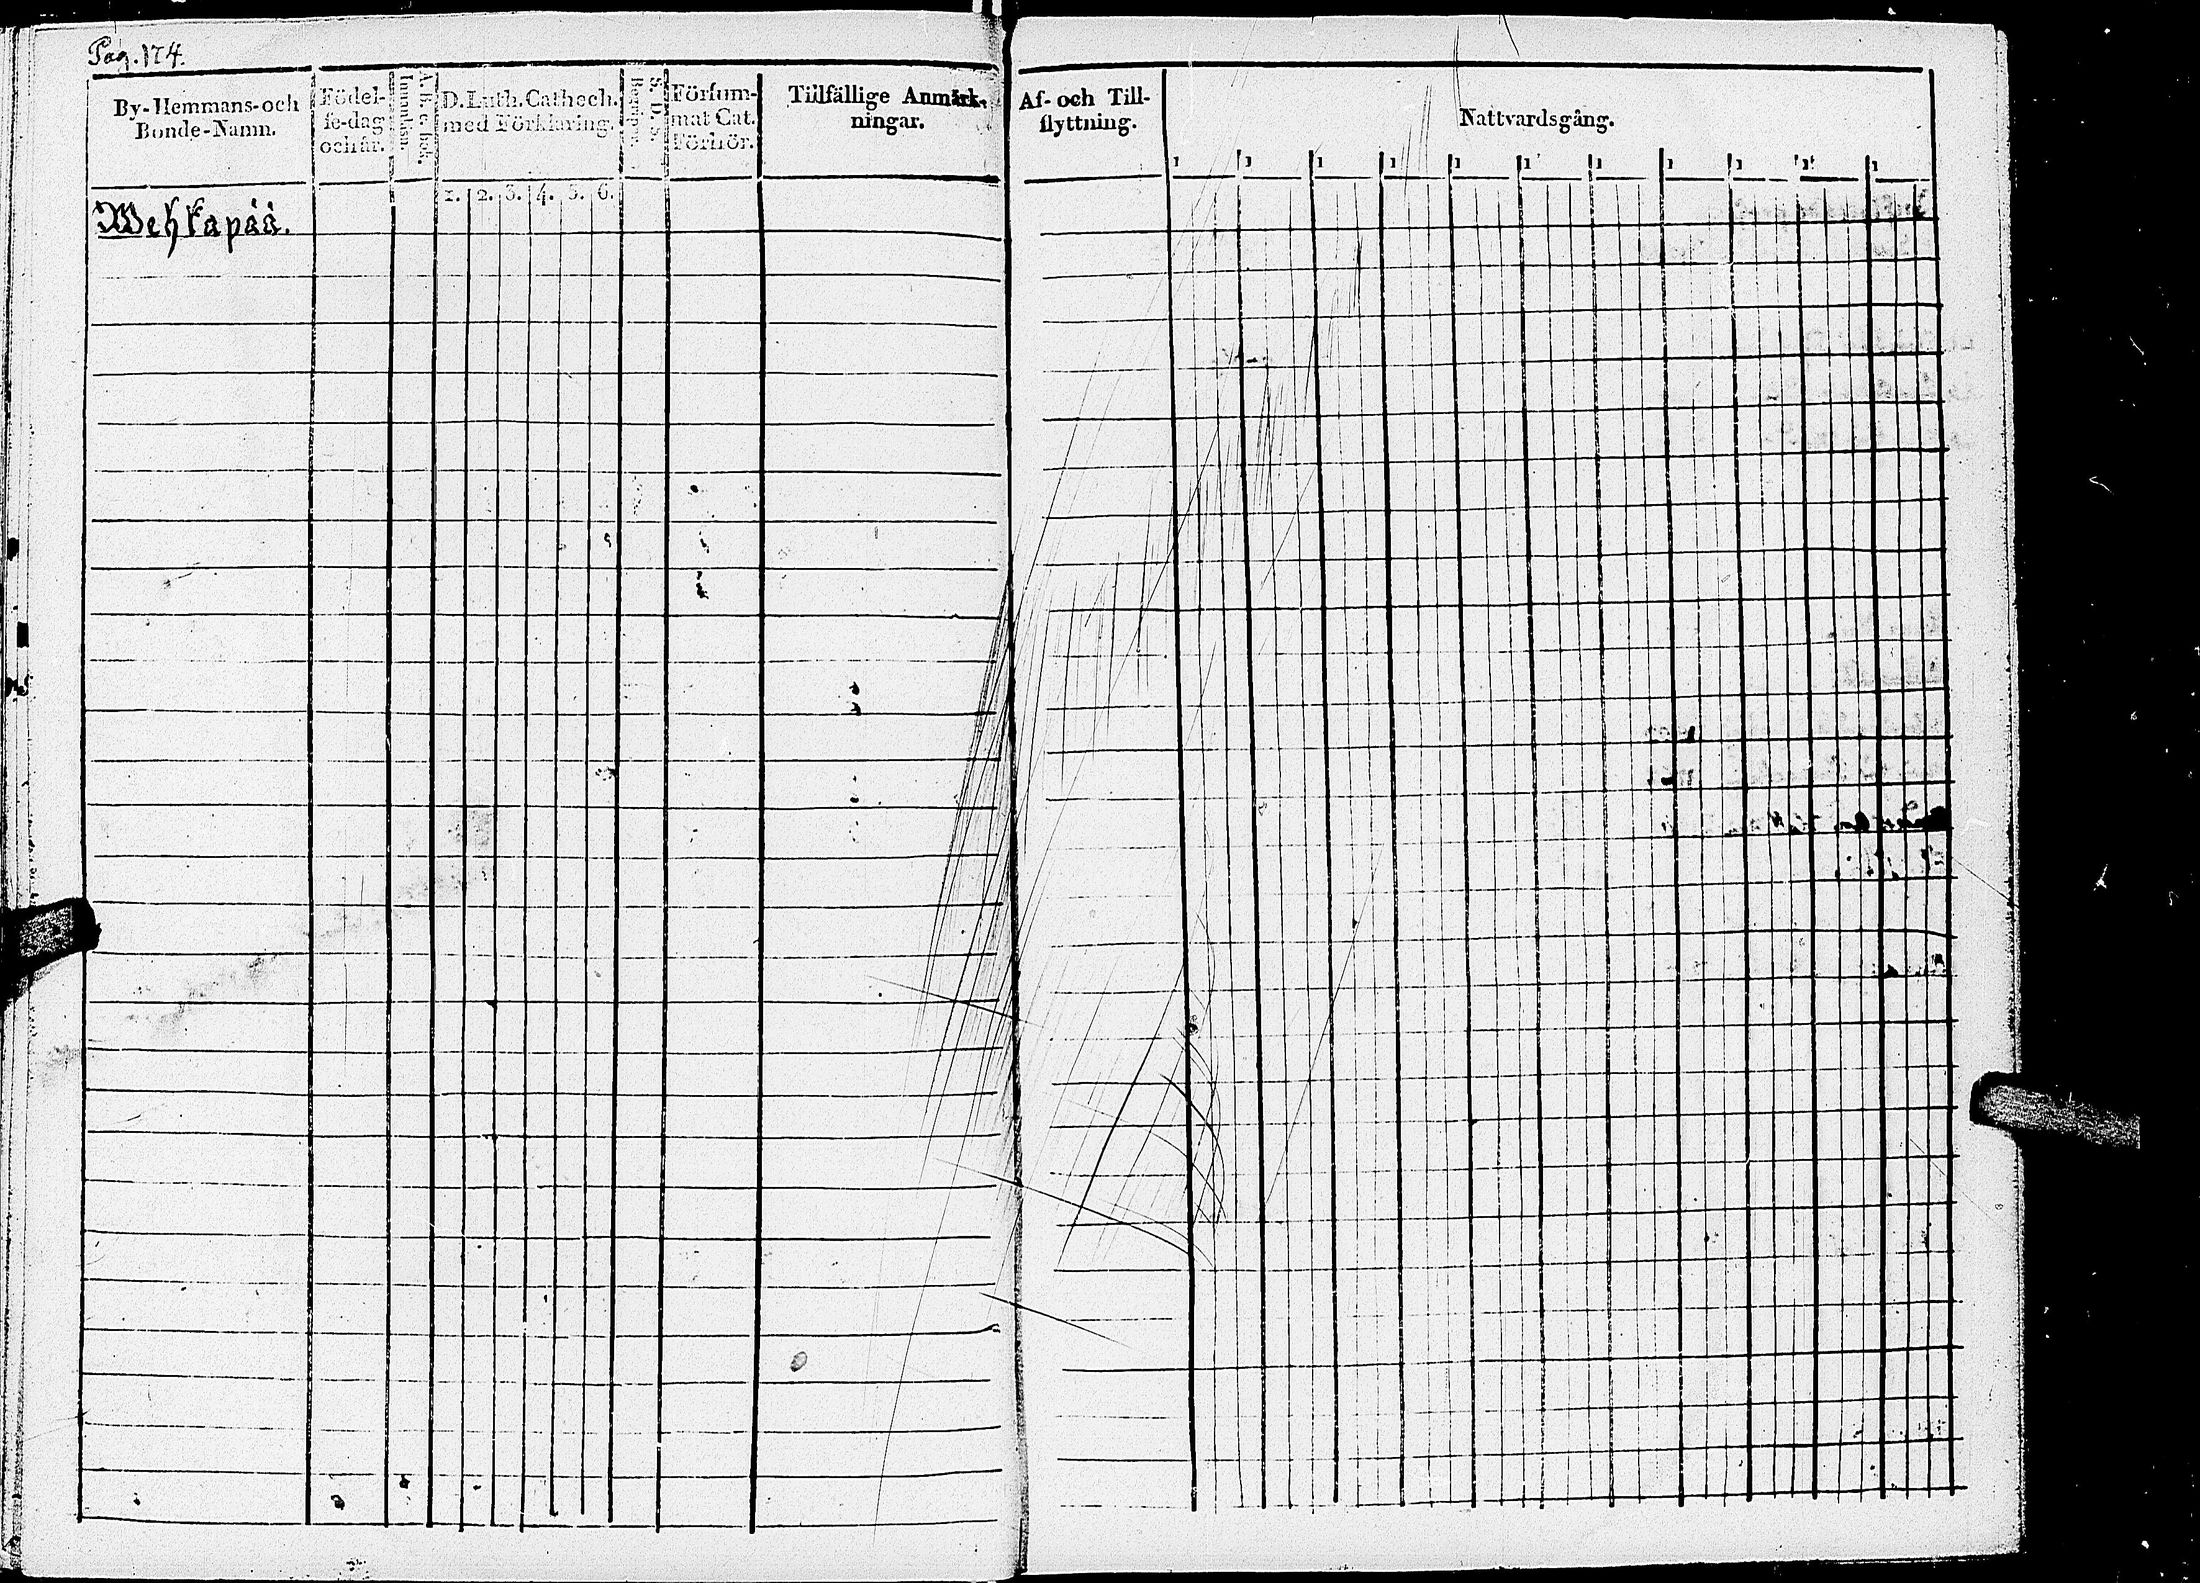 Pag. 174.
By-Hemmans-och
Bonde-Namn.
Födel-
se-dag
och år.
A. B. c. bok.
Innanläsn.
D. Luth. Cathech.
med Förklaring.
1. 2. 3. 4. 5. 6.
S. D. S.
Begrepp.
Försum-
mat Cat.
Förhör.
Tillfällige Anmärk-
ningar.
Wehkapää.
Af- och Till-
flyttning.
Nattvardsgång.
1 1 1 1 1 1 1 1 1 1 1